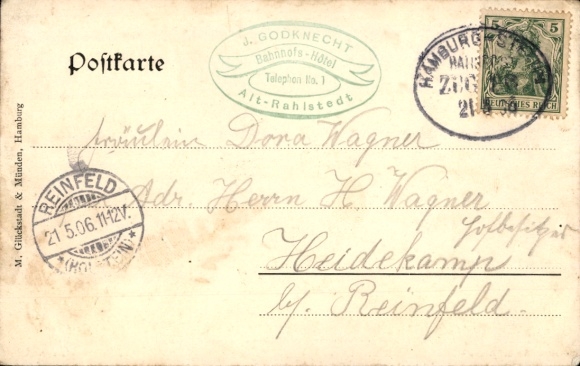 Postkarte
J. GODKNECHT
Bahnhofs-Hôtel
Telephon No. 1
Alt-Rahlstedt
HAMBURG
ZUG
5 5
DEUTSCHES REICH
Fräulein Dora Wagner
Adr. Herrn H Wagner
Hofbesitzer
Heidekamp
b/. Reinfeld.
REINFELD
21 5.06.11-12V.
*(HOLSTEIN)*
M. Glückstadt & Münden, Hamburg